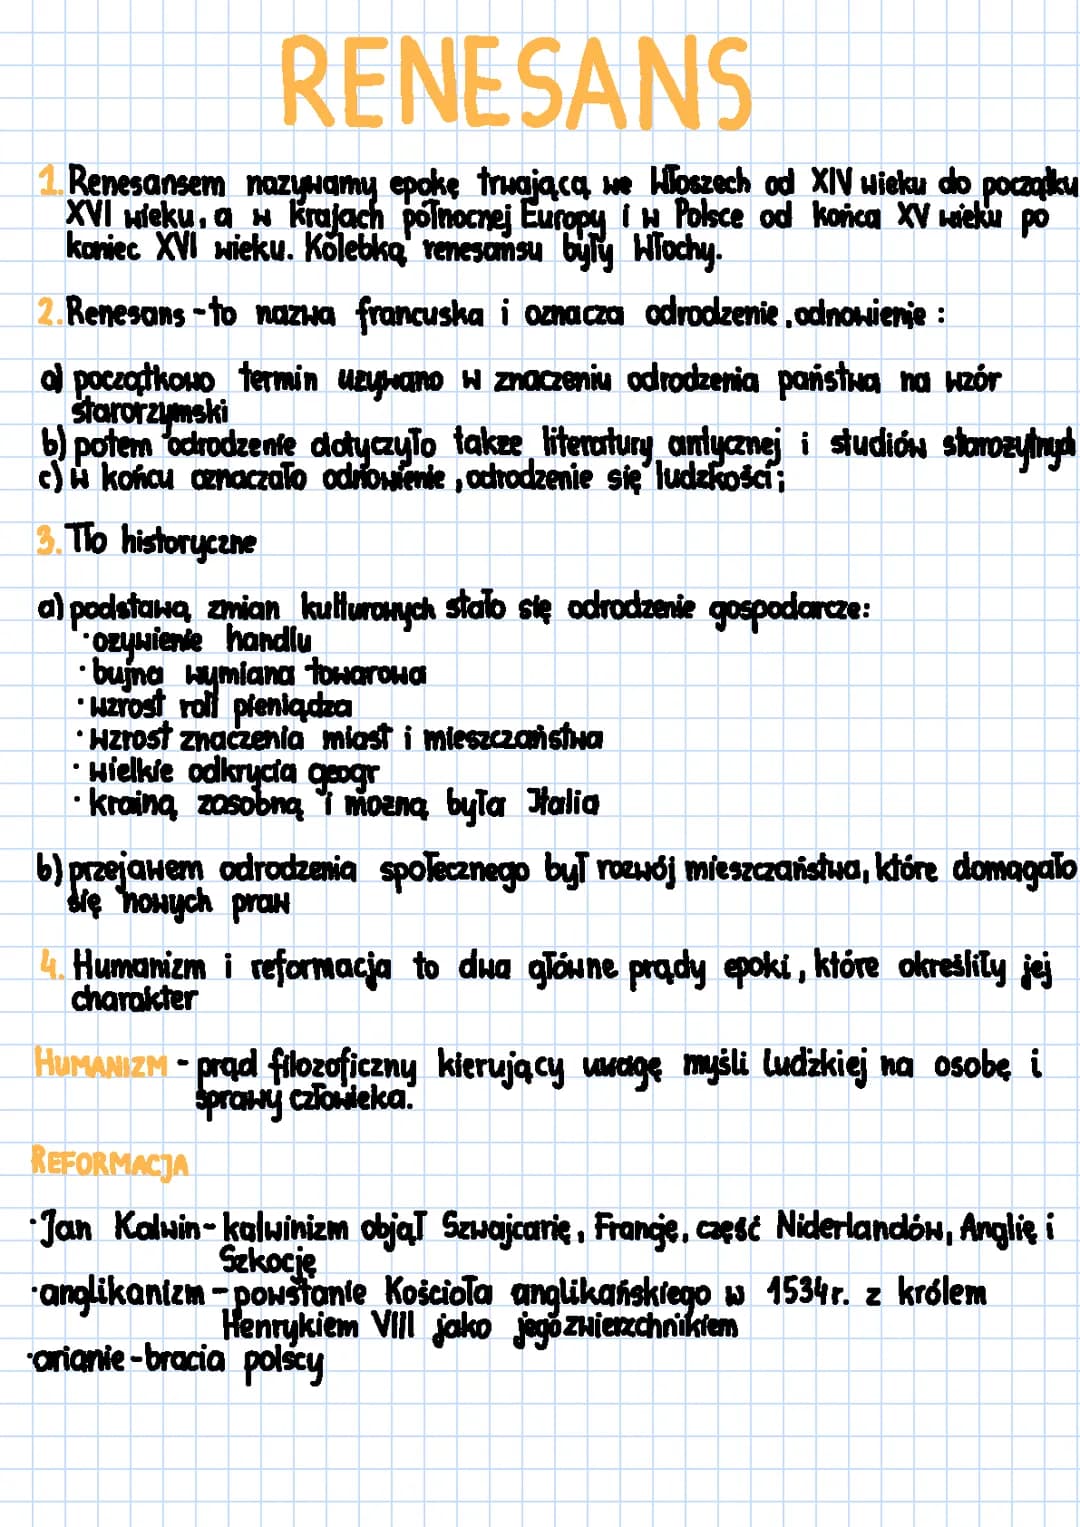 RENESANS
1. Renesansem nazywamy epokę trwającą we Włoszech od XIV wieku do początku
XVI wieku, a w krajach północnej Europy i w Polsce od końca XV wieku po
koniec XVI wieku. Kolebką renesansu były Włochy.
2. Renesans - to nazwa francuska i oznacza odrodzenie, odnowienie :
a) początkowo termin uzywano w znaczeniu odrodzenia państwa na wzór
starorzymski
b) potem odrodzenie dotyczyło takze literatury antycznej i studiów starozytnych
c) w końcu oznaczało odnowienie, odrodzenie się ludzkości;
3. Tło historyczne
a) podstawą zmian kulturowych stało się odrodzenie gospodarcze:
· ozywienie handlu
· bujna wymiana towarowa
· wzrost roli pieniądza
· wzrost znaczenia miast i mieszczaństwa
· wielkie odkrycia geogr
· krainą zasobną i mozną była Italia
b) przejawem odrodzenia społecznego był rozwój mieszczaństwa, które domagało
się nowych praw
4. Humanizm i reformacja to dwa główne prądy epoki, które określiły jej
charakter
HUMANIZM - prąd filozoficzny kierujący uwagę myśli ludzkiej na osobę i
sprawy człowieka.
REFORMACJA
· Jan Kalwin - kalwinizm objął Szwajcarię, Francję, część Niderlandów, Anglię i
Szkocję
· anglikanizm - powstanie Kościoła anglikańskiego w 1534r. z królem
Henrykiem VIII jako jego zwierzchnikiem
· arianie - bracia polscy